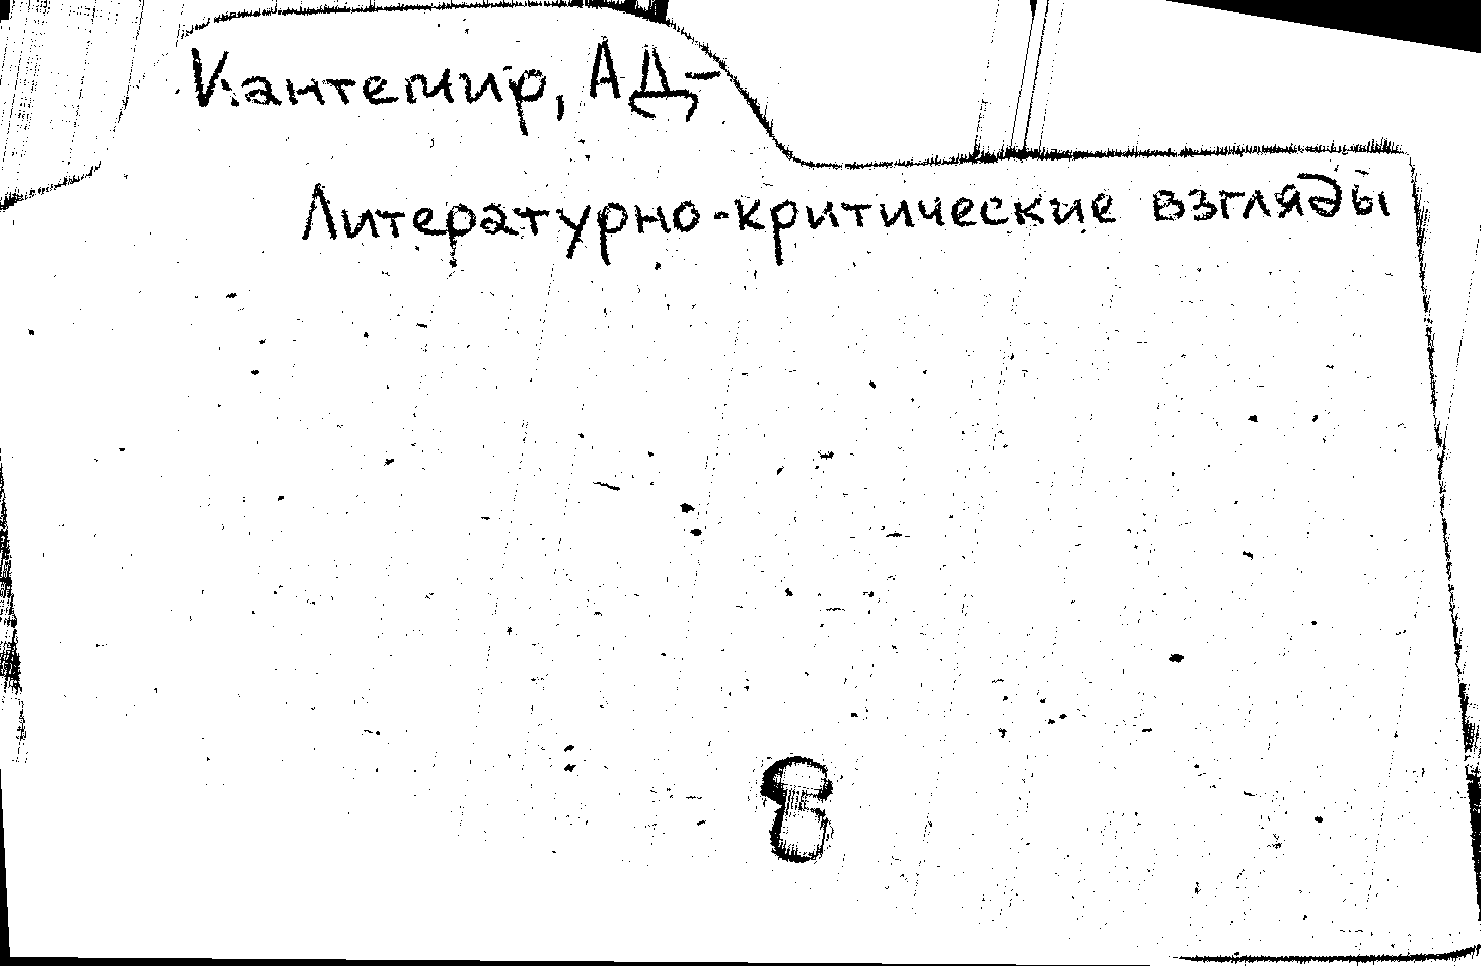 Кантемир, АД-
Литературно-критические взгляды